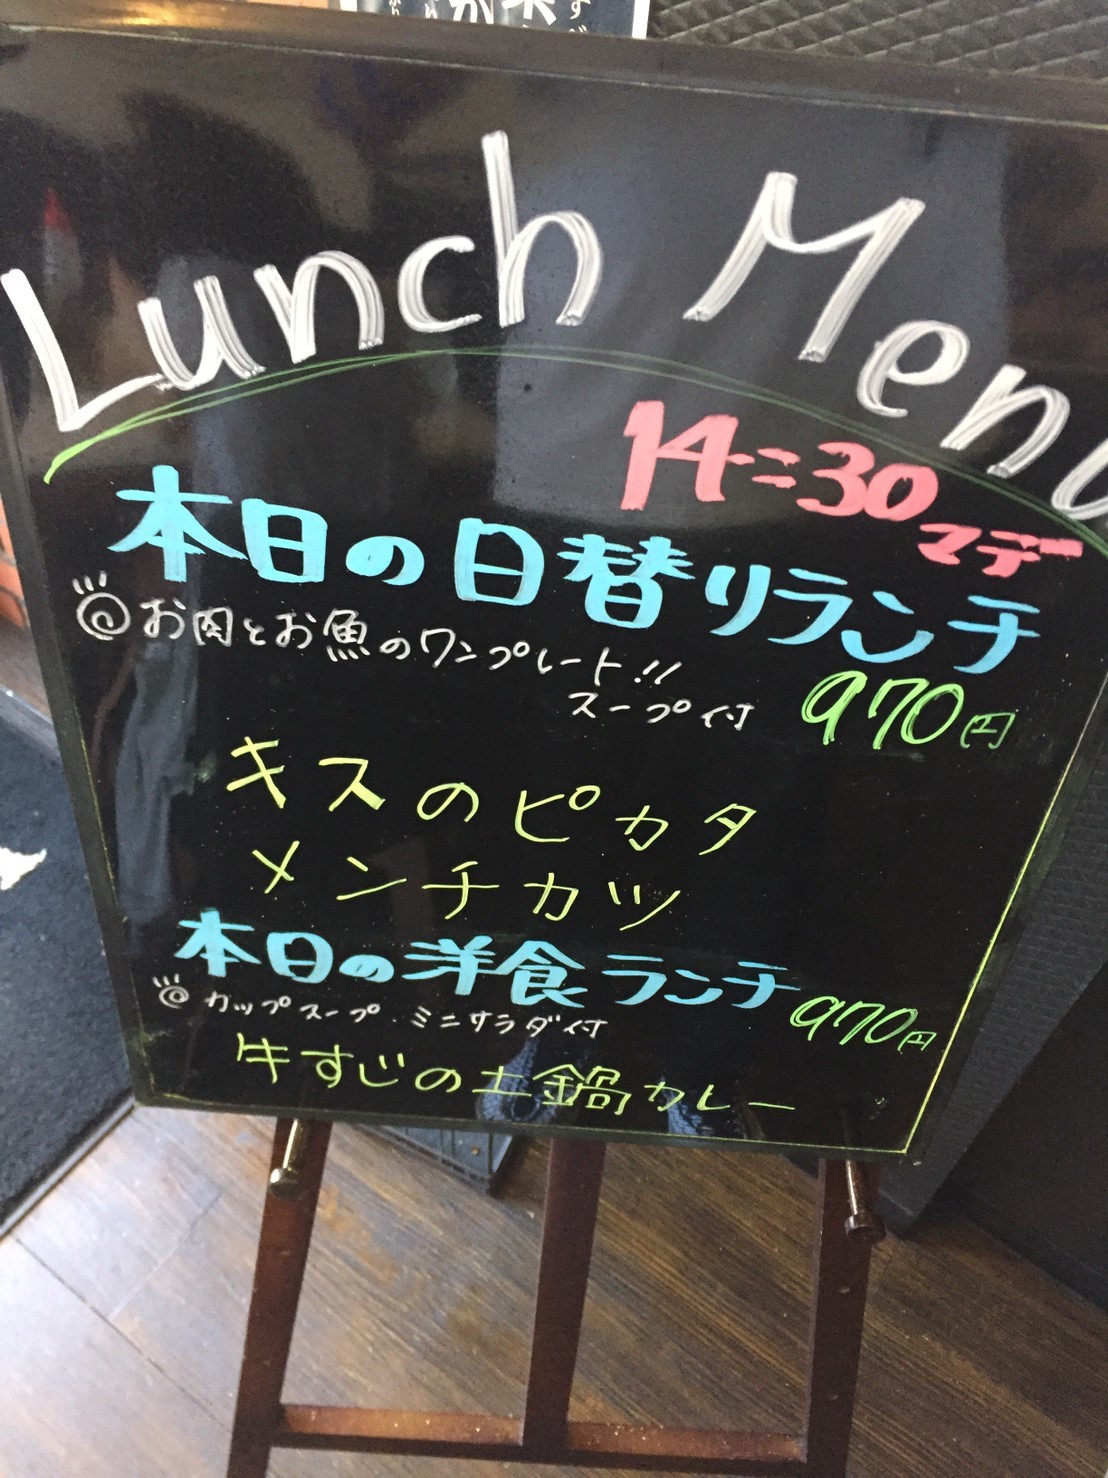 Lunch Menu
14:30
マデ
本日の日替りランチ
お肉とお魚のワンプレート!!
スープ付 970円
キスのピカタ
メンチカツ
本日の洋食ランチ 970円
カップスープ・ミニサラダ付
牛すじの土鍋カレー